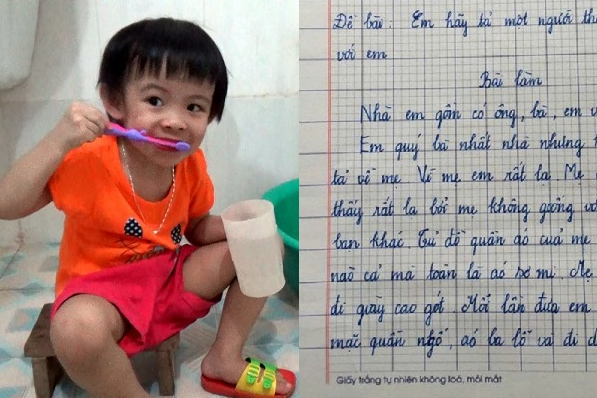 Đề bài: Em hãy tả một người th
với em
Bài làm
Nhà em gồm có ông, bà, em v
Em quý bà nhất nhà nhưng t
tả về mẹ. Vì mẹ em rất lạ. Mẹ
thấy rất lạ bởi mẹ không giống vớ
bạn khác. Tủ đồ quần áo của mẹ
nào cả mà toàn là áo sơ mi. Mẹ
đi giày cao gót. Mỗi lần đưa em
mặc quần ngố, áo ba lỗ và đi d
Giấy trắng tự nhiên không loá, mỏi mắt